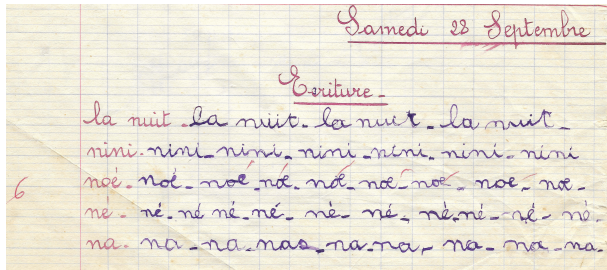 Samedi 28 Septembre
Ecriture -
la nuit - la nuit - la nuit - la nuit -
nini - nini - nini - nini - nini - nini - nini
noé - noé - noé - noé - noé - noé - noé - noé - noé -
6 né - né - né né - né - né - né - né - né - né - né -
na - na - na - nas - na - na - na - na - na -